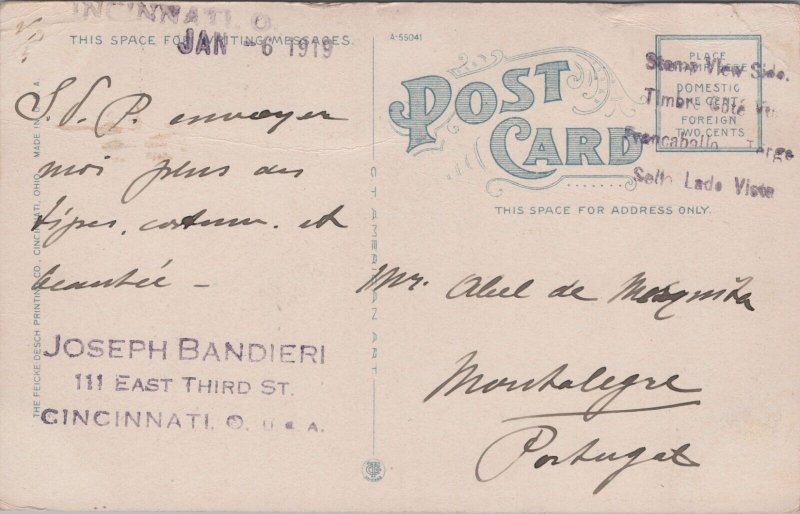 CINCINNATI, O.
JAN -6 1919
THIS SPACE FOR WRITING MESSAGES.
S.V.P. envoyer
moi plus des
tipes, costum. et
beautée –
JOSEPH BANDIERI
111 EAST THIRD ST.
CINCINNATI, O. U.S.A.
THE FEICKE DESCH PRINTING CO., CINCINNATI, OHIO. MADE IN U.S.A
CT AMERICAN ART
A-55041
POST
CARD
PLACE
HERE
DOMESTIC
ONE CENT
FOREIGN
TWO CENTS
Stamp View Side.
Timbre Côté Vue
Francabollo Tergo
Sello Lado Vista
THIS SPACE FOR ADDRESS ONLY.
Mr. Abel de Mesquita
Montalegre
Portugal